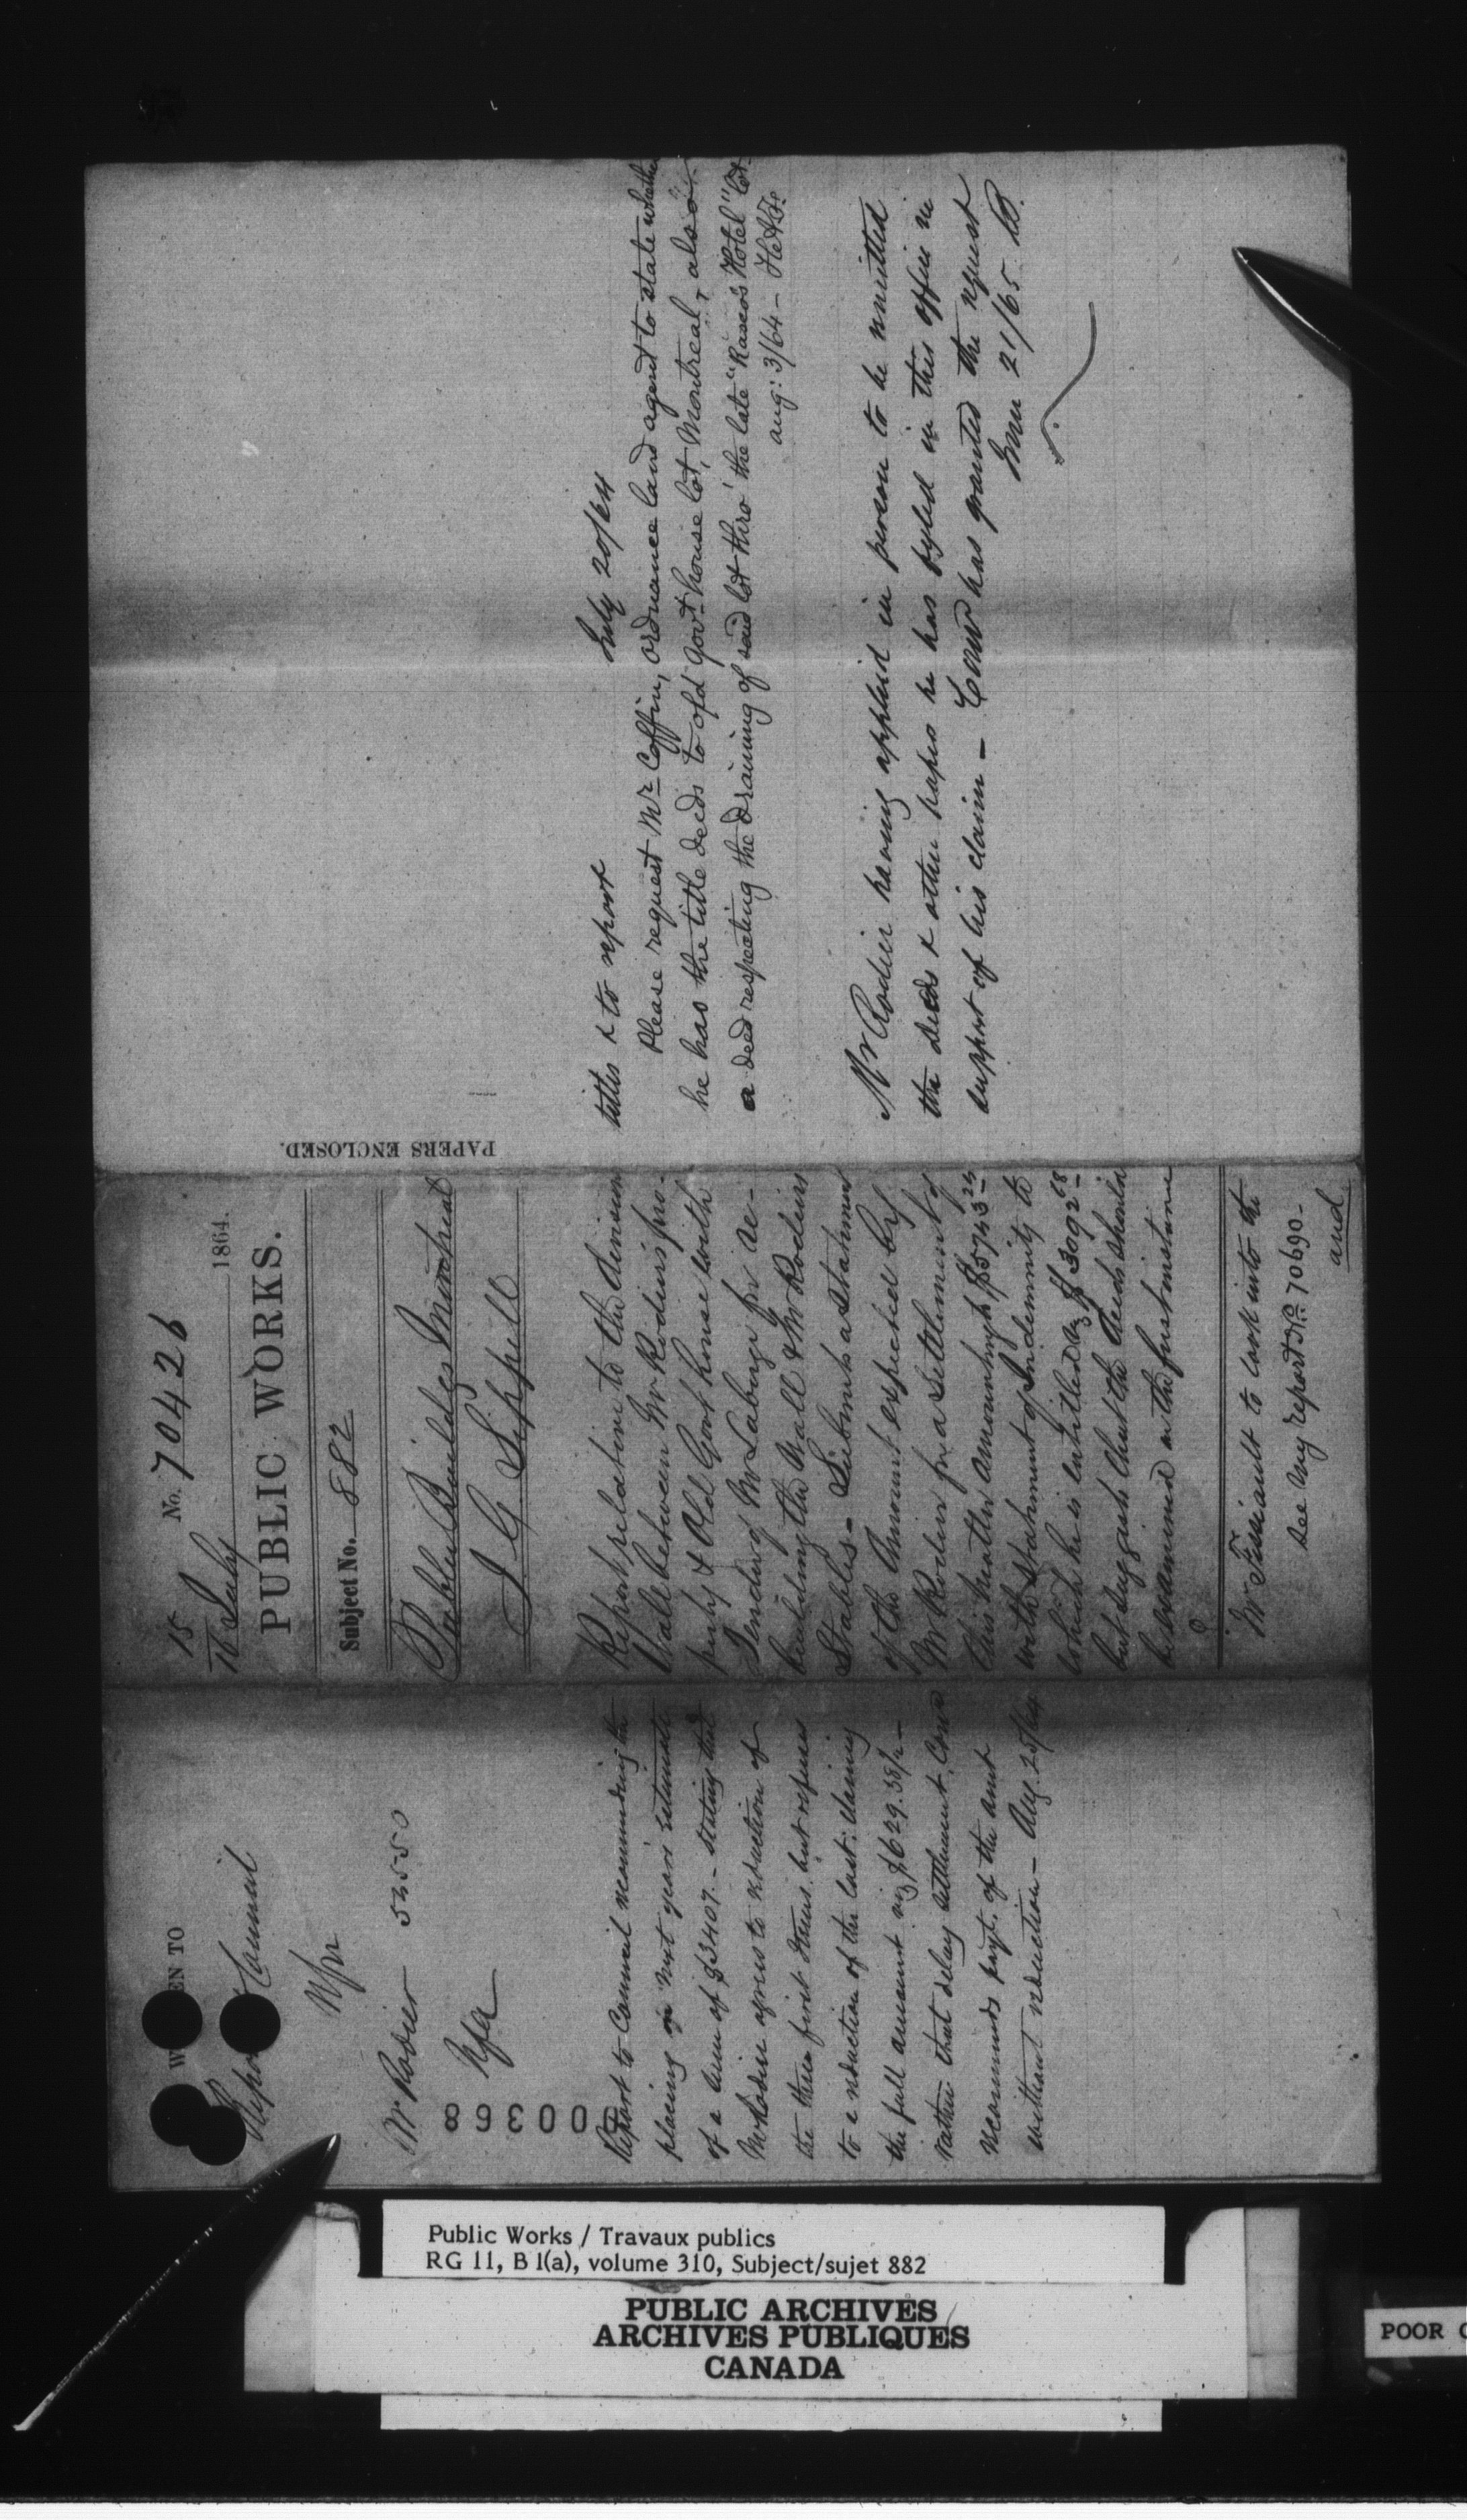 WRITTEN TO
Report Council
Mr Rodier 5250
000368
Report to Council recommending the
placing in next years Estimate
of a sum of $3407. - stating that
Mr Rodier agrees to reduction of
the three first items, but refuses
to a reduction of the last: claiming
the full amount viz $629.38/2 -
rather than delay settlement, Comr
recommends payt. of the amt
without reduction - Aug. 25/64
15 No. 70426
16 July 1864.
PUBLIC WORKS.
Subject No. 882
Public Buildgs Montreal
J. G. Sippell
Report relative to the division
Wall between Mr Rodier's pro-
perty & Old Govt house with
Tender of Mr Labarge for re-
building the Wall & Mr Rodiers
Stables - Submits a Statement
of the Amount expected by
Mr Rodier for a Settlement of
this matter amounting to $5743.25
with statement of Indemnity to
which he is entitled viz $3092.68
but suggests that the deeds should
be examined in the first instance
Mr Fissiault to look into the
see my report No. 70690 -
and
PAPERS ENCLOSED.
titles & to report July 20/64
Please request Mr. Coffin, ordnance land agent to state whether
he has the title deeds to old Govt. house lot, Montreal, also
a deed respecting the draining of said lot thro' the late "Rasco's Hotel" lot
aug: 3/64 -
Mr Rodier having applied in person to be remitted
the deeds & other papers he has fyled in this office in
support of his claim - Comr has granted the request
June 21/65.
Public Works / Travaux publics
RG 11, B 1(a), volume 310, Subject/sujet 882
PUBLIC ARCHIVES
ARCHIVES PUBLIQUES
CANADA
POOR